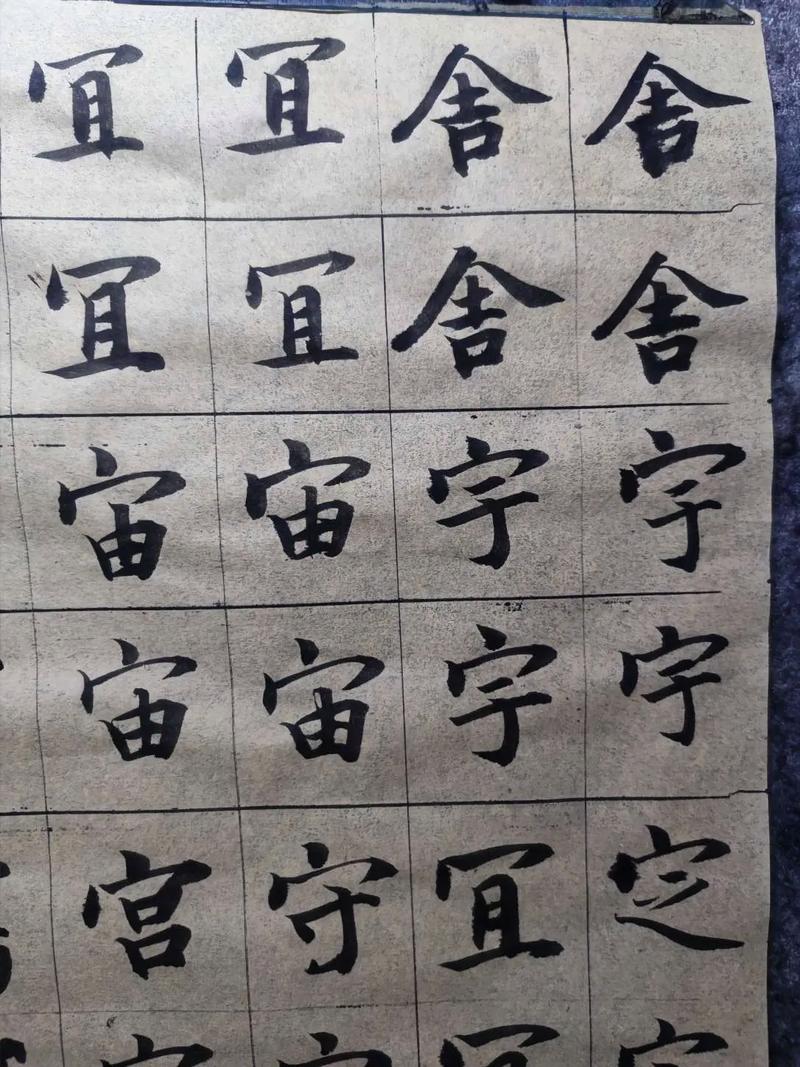 舍舍宇宇定
舍舍宇宇宜
宜宜宙宙守
宜宜宙宙宫